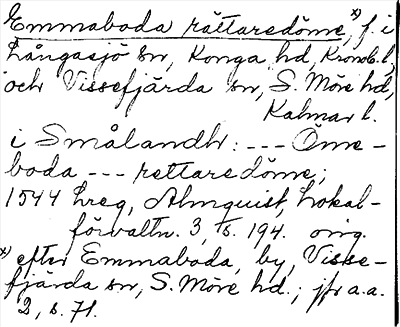 Emmaboda rättaredöme, x) f. i
Långasjö sn, Konga hd, Kronob. l,
och Vissefjärda sn, S. Möre hd,
Kalmar l.
i Smålandh: --- Öme-
boda --- rettaredöme;
1544 hreg, Almquist, Lokal-
förvaltn. 3, s. 194. orig.
x) efter Emmaboda, by, Visse-
fjärda sn, S. Möre hd.; jfr a.a.
2, s. 71.